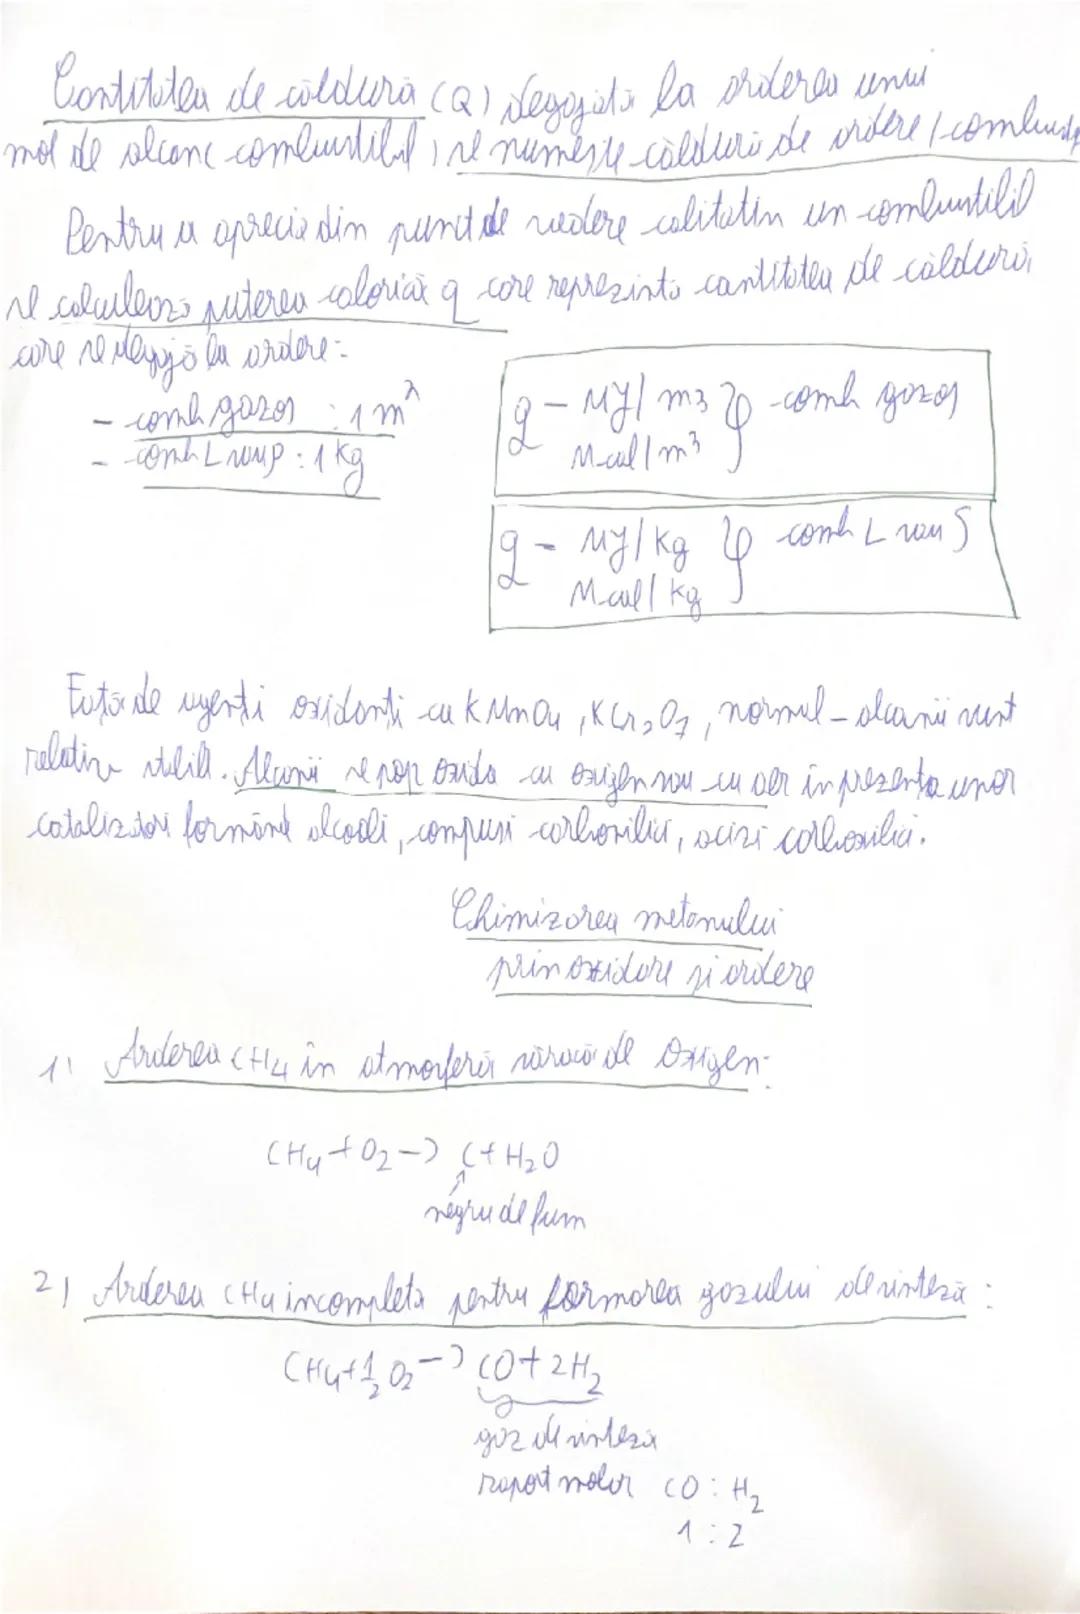 Cantitatea de căldură (Q) degajată la arderea unui
mol de alcanc combustibil) se numește căldură de ardere / combustie
Pentru a aprecia din punct de vedere calitativ un combustibil
se calculează puterea calorică q care reprezintă cantitatea de căldură,
care se degajă la ardere:
- comb gazos : 1 m³
- comb L sau p : 1 kg
q - MJ/ m3 } - comb gazos
Mcal/m³
q - MJ/kg } comb L sau S
Mcal/kg
Față de agenți oxidanți ca KMnO4, KCr2O7, normal-alcanii sunt
relativ stabili. Alcanii se pot oxida cu oxigen sau cu aer în prezenta unor
catalizatori formând alcooli, compuși carbonilici, acizi carboxilici.
Chimizarea metanului
prin oxidare și ardere
1) Arderea CH4 în atmosferă săracă de Oxigen:
CH4 + O2 -> C + H2O
negru de fum
2) Arderea CH4 incompletă pentru formarea gazului de sinteză :
CH4 + 1/2 O2 -> CO + 2H2
gaz de sinteză
raport molar CO : H2
1 : 2